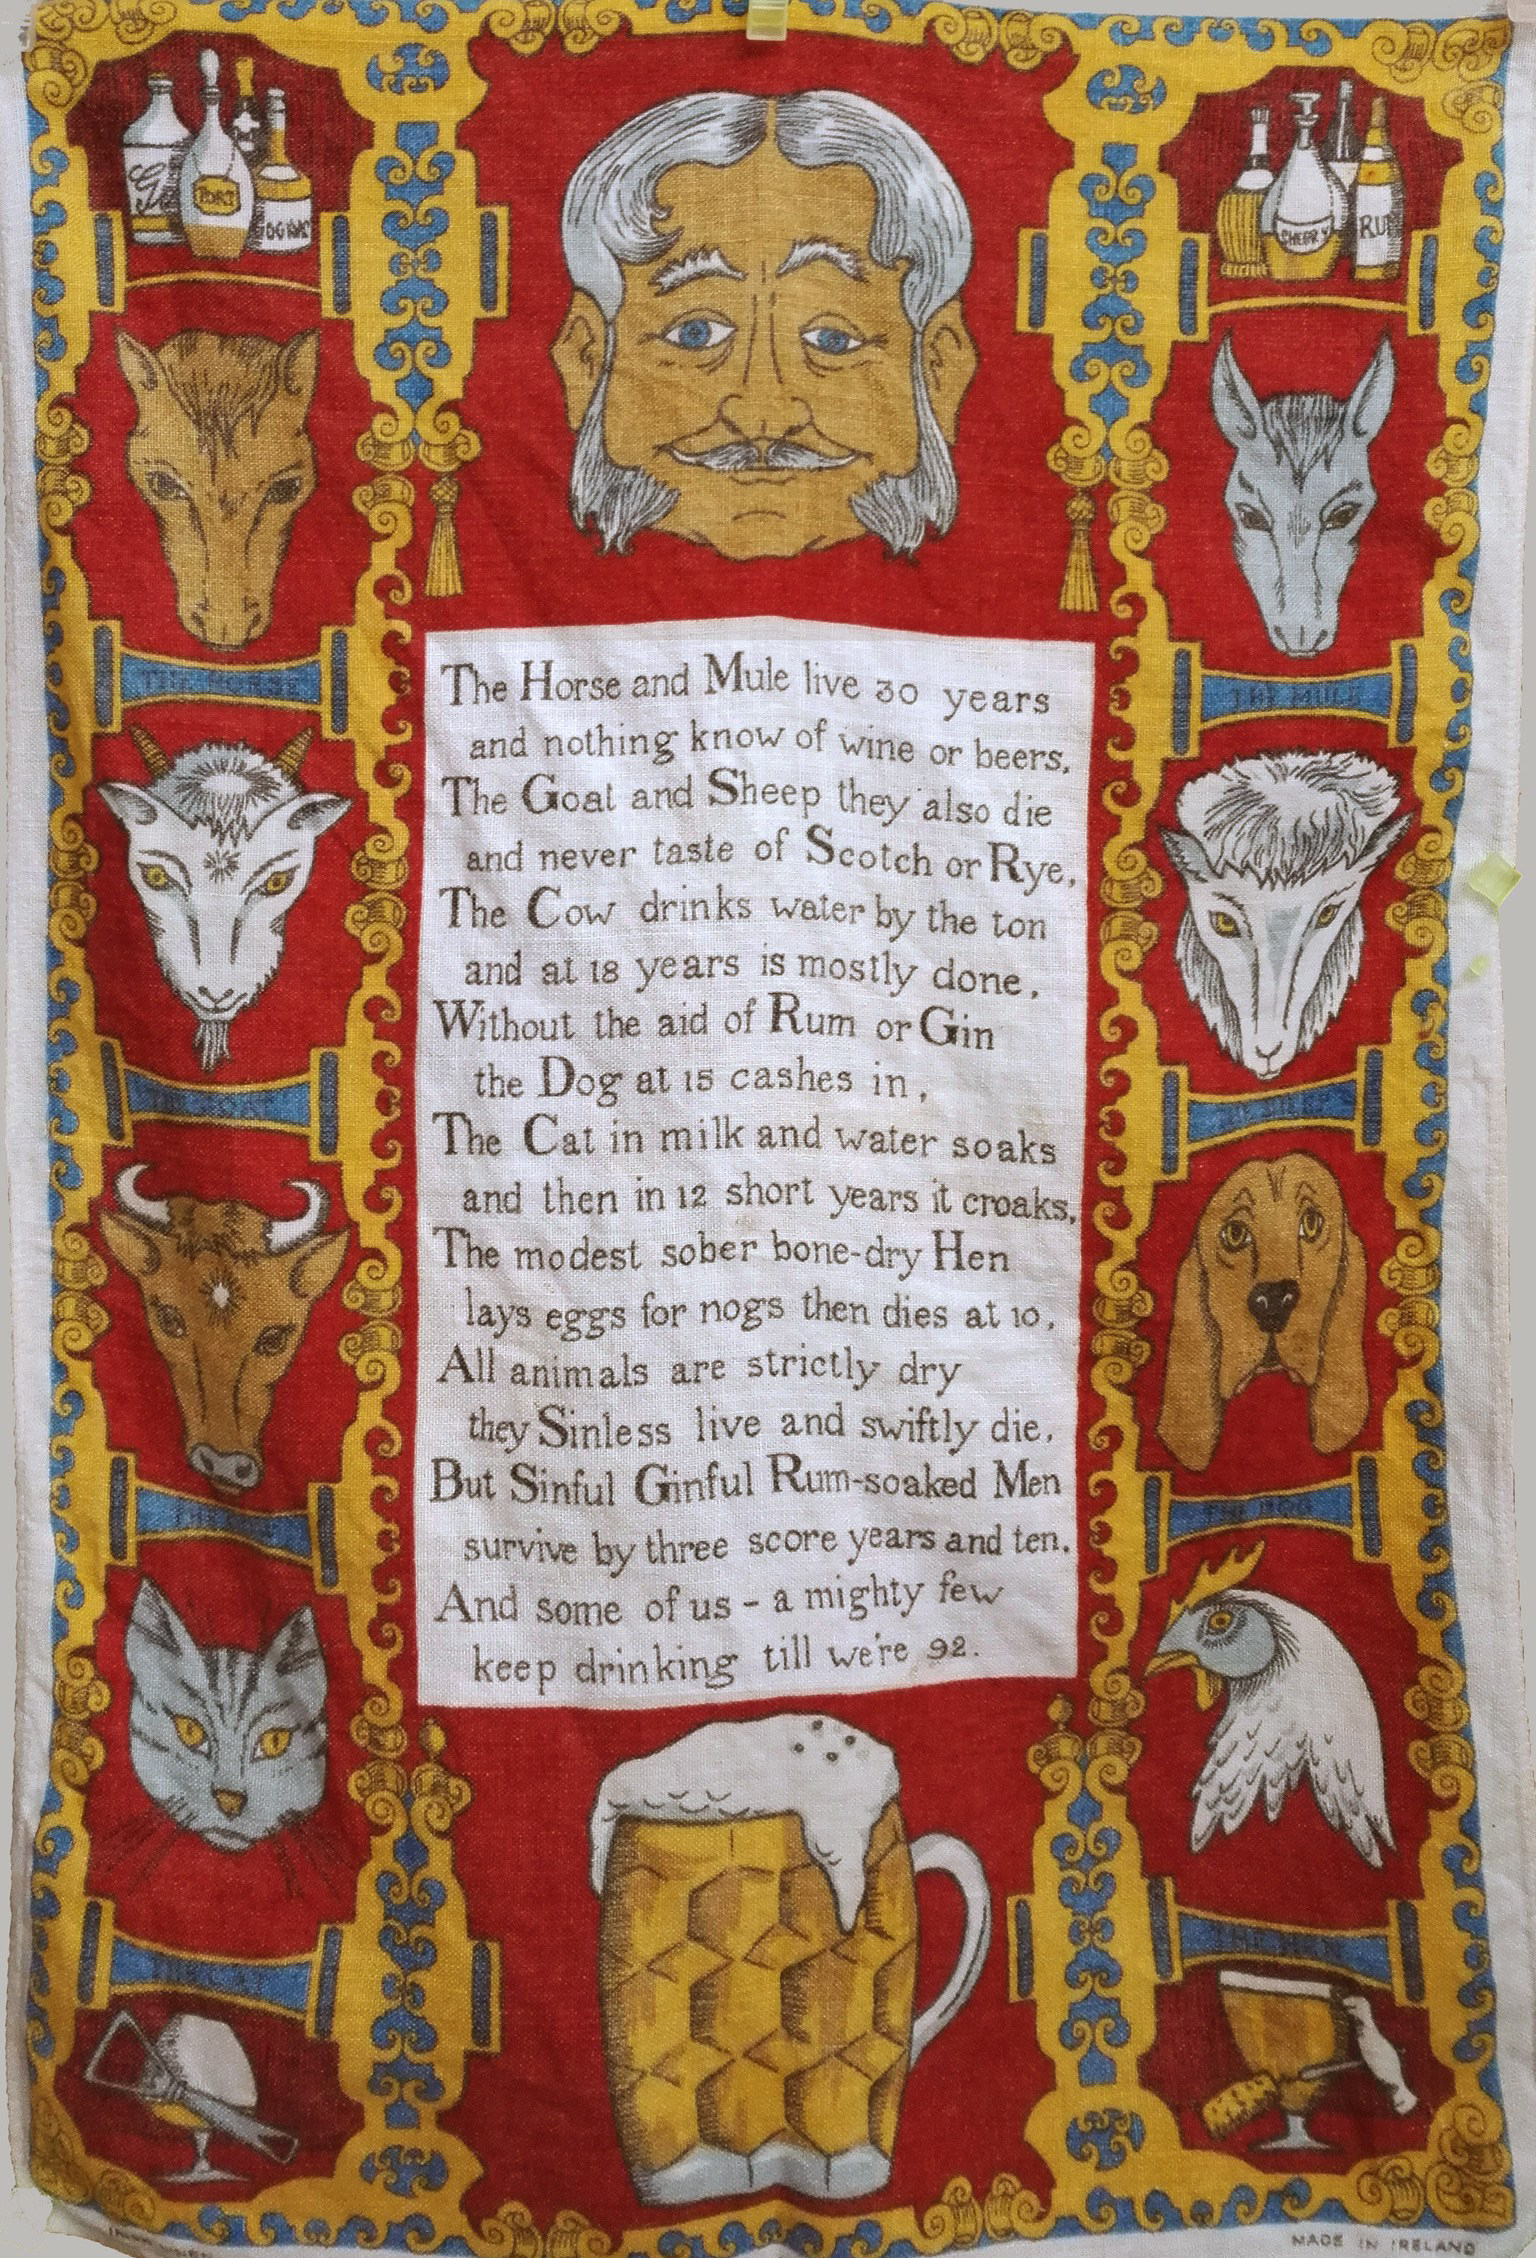 PORT
SHERRY
RUM
THE HORSE
THE MULE
The Horse and Mule live 30 years
and nothing know of wine or beers.
The Goat and Sheep they also die
and never taste of Scotch or Rye.
The Cow drinks water by the ton
and at 18 years is mostly done.
Without the aid of Rum or Gin
the Dog at 15 cashes in,
The Cat in milk and water soaks
and then in 12 short years it croaks.
The modest sober bone-dry Hen
lays eggs for nogs then dies at 10.
All animals are strictly dry
they Sinless live and swiftly die.
But Sinful Ginful Rum-soaked Men
survive by three score years and ten.
And some of us - a mighty few
keep drinking till we're 92.
THE GOAT
THE DOG
THE CAT
THE HEN
MADE IN IRELAND